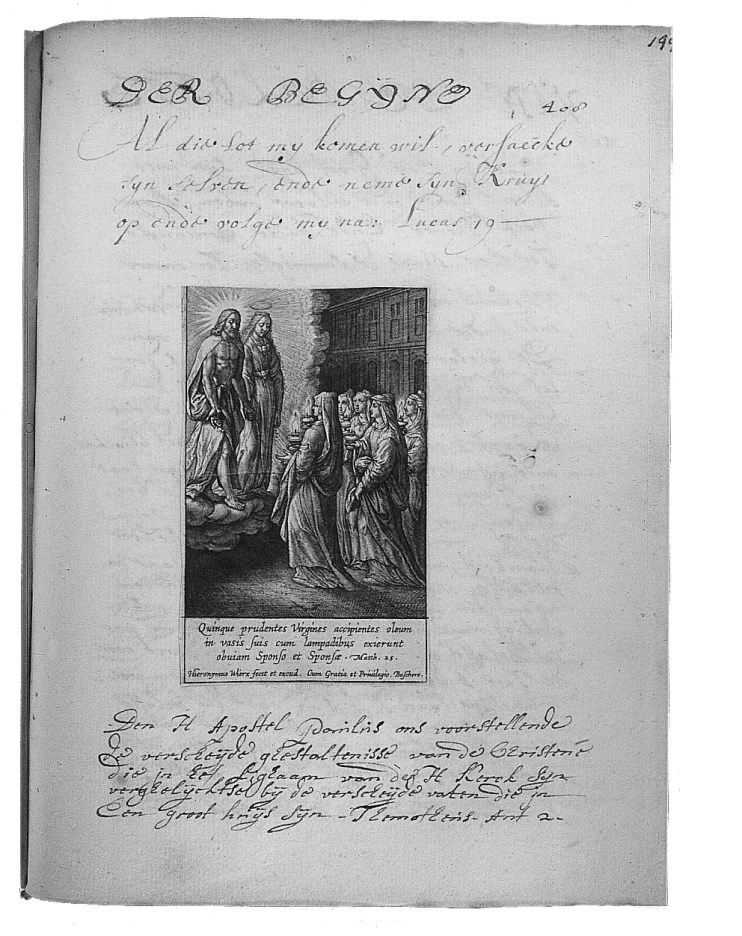 199
DER BEGYNO
408
Al die tot my komen wil, versaecke
syn selven, ende neme syn Kruys
op ende volge my na: Lucas 19
Quinque prudentes Virgines accipientes oleum
in vasis suis cum lampadibus exierunt
obuiam Sponso et Sponsæ. Matth. 25.
Hieronymus Wierx fecit et excud. Cum Gratia et Priuilegio. Buschere.
Den H Apostel Paulus ons voorstellende
de verscheyde ghestaltenisse van de Christene
die in het lighaam van des H Kerck syn
verghelyckt sel by de verscheyde vaten die in
Een groot huys syn - Themotheus - Ant 2 -